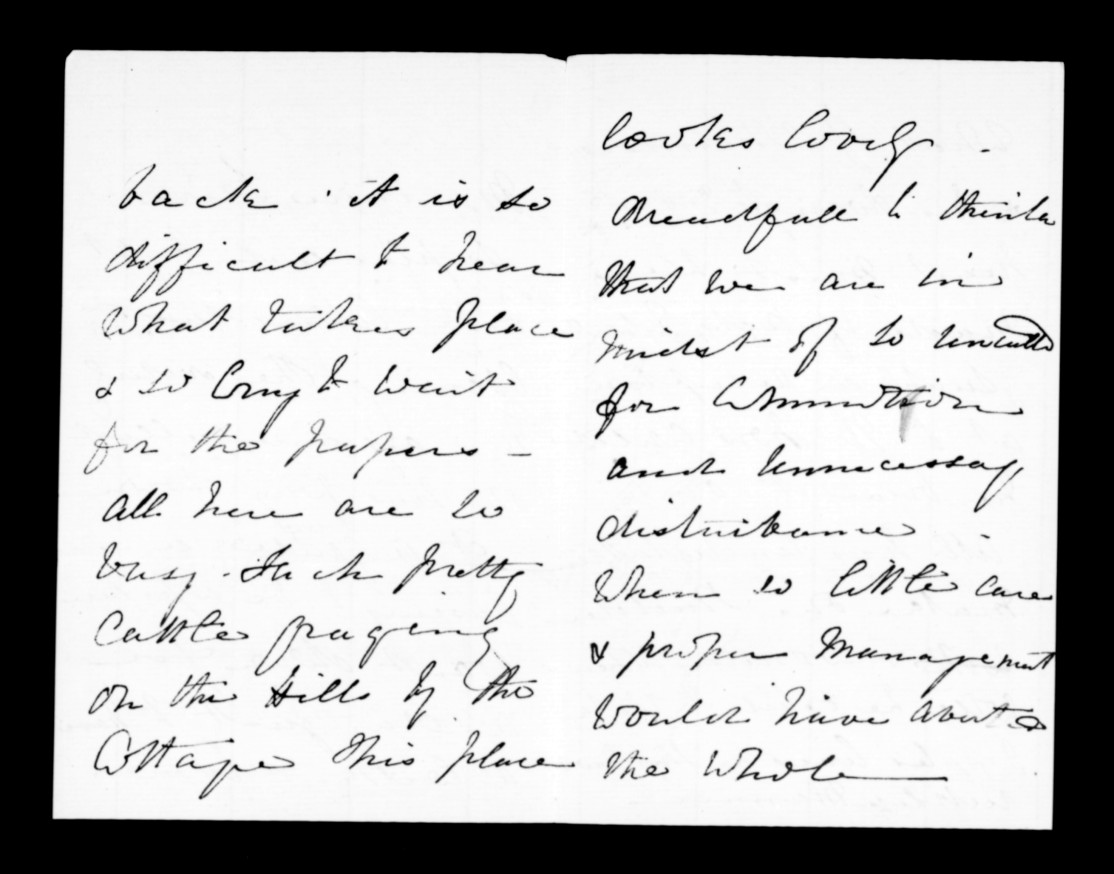 back. it is so
difficult to hear
what takes place
& so long to wait
for the papers –
all here are so
busy. Such pretty
Cattle grazing
on the Hills by the
Cottage this place
looks lovely -
dreadfull to think
that we are in
midst of so
for Commotion
and unnecessay
disturbance -
When so little care
& proper Management
would have averted
the Whole